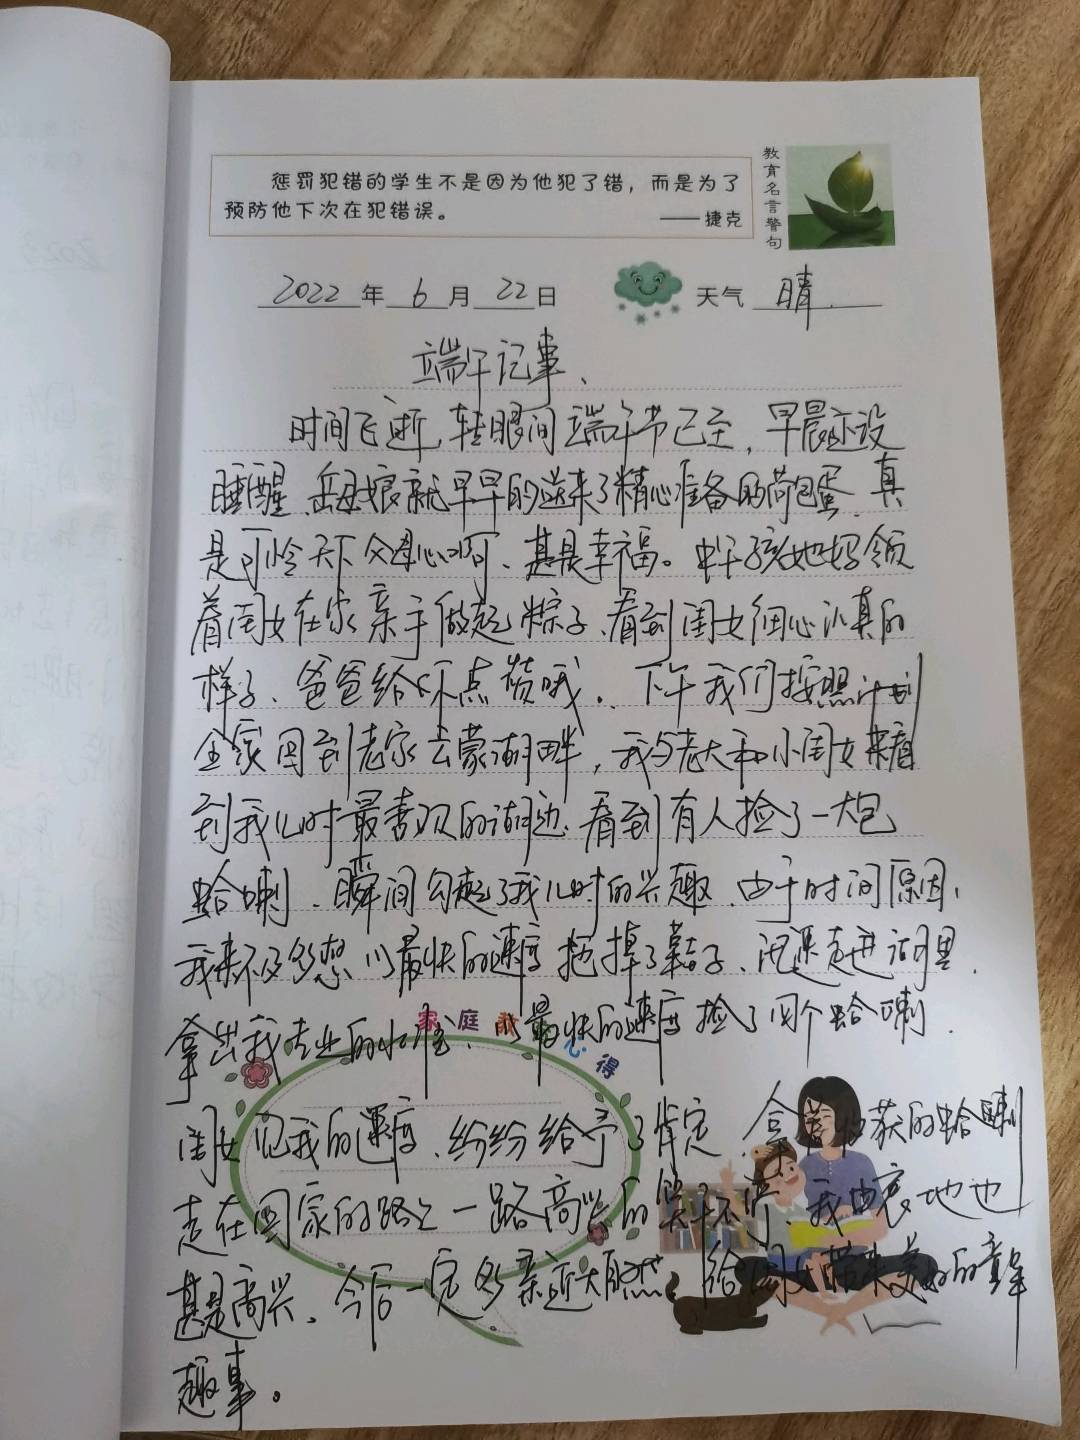 惩罚犯错的学生不是因为他犯了错，而是为了
预防他下次在犯错误。
——捷克
教育名言警句
2022年6月22日 天气 晴.
端午记事、
时间飞逝,转眼间端午节已至,早晨还没
睡醒、岳母娘就早早的送来了精心准备的荷包蛋、真
是可怜天下父母心啊、甚是幸福。中午孩她妈领
着闺女在家亲手做起粽子、看到闺女细心认真的
样子、爸爸给你点赞哦。下午我们按照计划
全家回到老家云蒙湖畔，我与老大和小闺女来着
到我儿时最喜欢的湖边、看到有人捡了一大包
蛤喇、瞬间勾起了我儿时的兴趣、由于时间原因、
我来不及多想以最快的速度拖掉了鞋子、迅速走进湖里、
拿出我专业的水准、以最快的速度捡了四个蛤喇、
家庭 心得
闺女见我的速度、纷纷给予了肯定、拿着收获的蛤喇
走在回家的路上一路高兴的笑个不停、我由衷地也
甚是高兴、今后一定多亲近大自然、给闺女带来美好的童年
趣事。